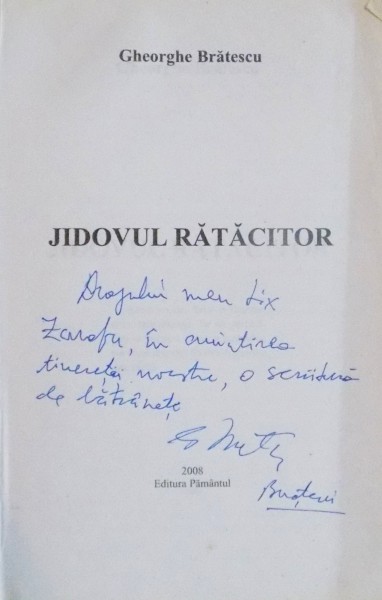 Gheorghe Brătescu
JIDOVUL RĂTĂCITOR
Dragului meu Lix
Zarafu, în amintirea
tinereții noastre, o scriitură
de bătrânețe
2008
Editura Pământul